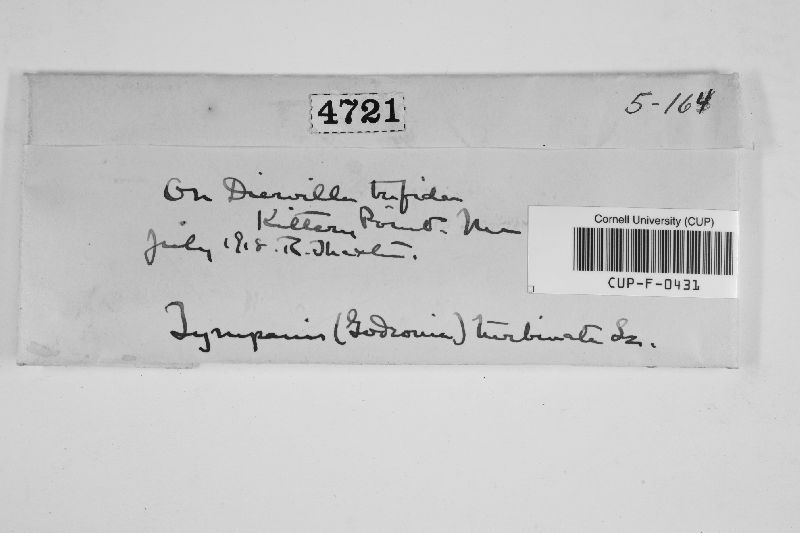 4721
5-164
On Diervilla trifida
Kittery Point. Me
July 1918. R. Thaxter.
Cornell University (CUP)
CUP-F-0431
Tympanis (Godronia) turbinata Sz.